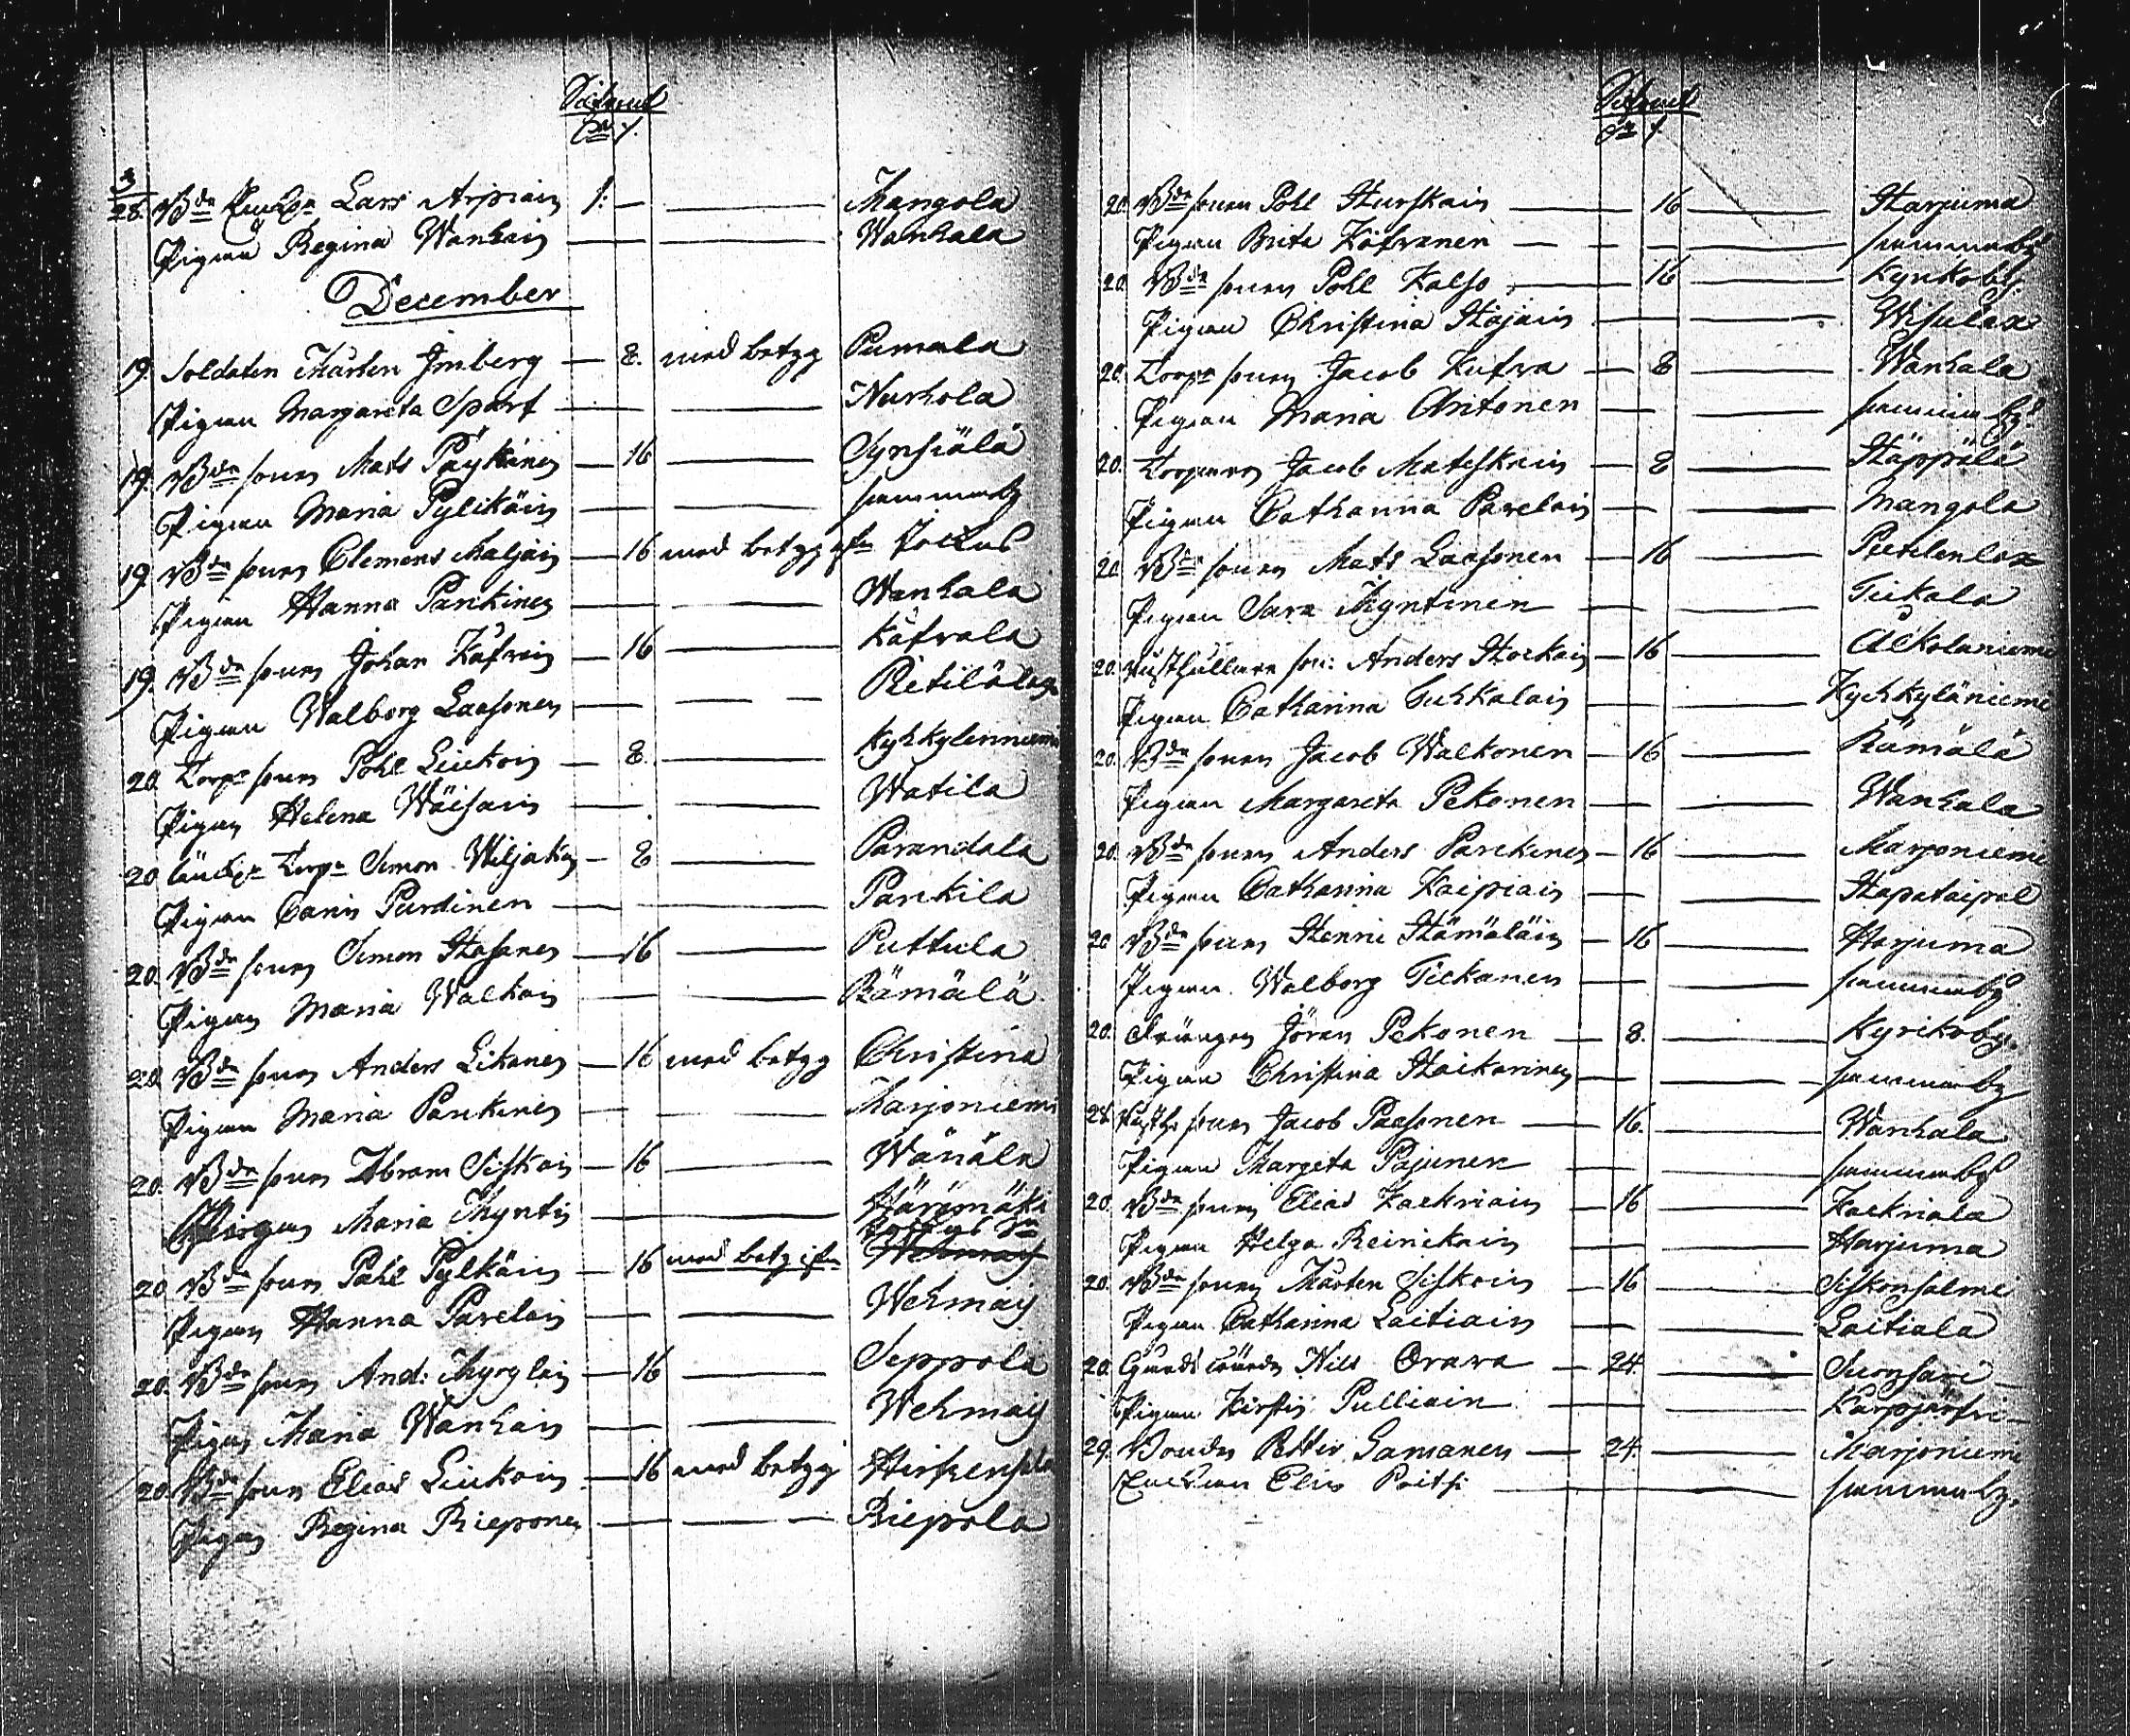 3
28. Bde Enkl. Lars Arpiain 1: — Mangola
Pigan Regina Wanhain — Wanhala
December
19. Soldaten Mårten Imberg — 8. med betyg Pumala
Pigan Margareta Sparf — Nurhola
19. Bde sonen Mats Päykinen — 16 — Synsiälä
Pigan Maria Pylkäin — sammaby
19. Bde sonen Clemens Maljain — 16 med betyg ifrån Jockas
Pigan Hanna Pankinen — Wanhala
19. Bde sonen Johan Käfrein — 16 — Käfvala
Pigan Walborg Laasonen — Pietilälax
20. Torp. sonen Påhl Liukoin — 8. — Kyhkylänniemi
Pigan Helena Wäisäin — Watila
20 Torp. Simon Wiljakain — 8 — Parandala
Pigan Carin Purdinen — Pankila
20. Bde sonen Simon Hasanen — 16 — Puttula
Pigan Maria Walkoin — Rämälä
20. Bde sonen Anders Likanen — 16 med betyg Christina
Pigan Maria Pankinen — Marjoniemi
20. Bde sonen Abram Siskoin — 16 — Wänälä
Pigan Maria Myntin — Härämäki
Jockas Sn
20 Bde sonen Påhl Pylkäin — 16 med betyg ifrån Wehmais
Pigan Hanna Parelain — Wehmais
20. Bde sonen And: Myrylain — 16 — Seppola
Pigan Maria Wanhain — Wehmais
20. Bde sonen Elias Liukoin — 16 med betyg Hirfvensalo
Pigan Regina Rieponen — Riepola
20. Bde sonen Pohl Hurskain — 16 — Harjuma
Pigan Brita Köfvanen — sammaby
20. Bde sonen Pohl Kalso — 16 — Kyrkoby.
Pigan Christina Hajain — Wisulax
20. Torpr sonen Jacob Kufva — 8 — Wanhala
Pigan Maria Antonen — samma by
20. Torparen Jacob Mateskain — 8 — Häppälä
Pigan Catharina Parelain — Mangola
20 Bde sonen Mats Laasonen — 16 — Pietilenlax
Pigan Sara Myntinen — Tiikala
20. Rusthållare son: Anders Horkain — 16 — Alkolaniemi
Pigan Catharina Suhkalain — Kyhkyläniemi
20. Bde sonen Jacob Walkonen — 16 — Rämälä
Pigan Margareta Pekonen — Wanhala
20. Bde sonen Anders Parkinen — 16 — Marjoniemi
Pigan Catharina Kaipiain — Hapataipal
20 Bde sonen Henric Hämäläin — 16 — Harjuma
Pigan Walborg Tiikanen — sammaby
20. Drängen Jöran Pekonen — 8. — Kyrkoby.
Pigan Christina Haikarinen — samma by
28. Rusth. sonen Jacob Paasonen — 16. — Wanhala
Pigan Margeta Pajunen — sammaby
20. Bde sonen Elias Kaskriain — 16 — Kaskriala
Pigan Helga Reinikain — Harjuma
20. Bde sonen Mårten Siskoin — 16 — Siskonsalmi
Pigan Catharina Laitiain — Laitiala
20. Nils Orava — 24. — Suonsari
Pigan Kirstin Pulliain — Karpjärfvi
29. Bonden Petter Samanen — 24. — Marjoniemi
Enkian Elin Poitsi — sammaby.